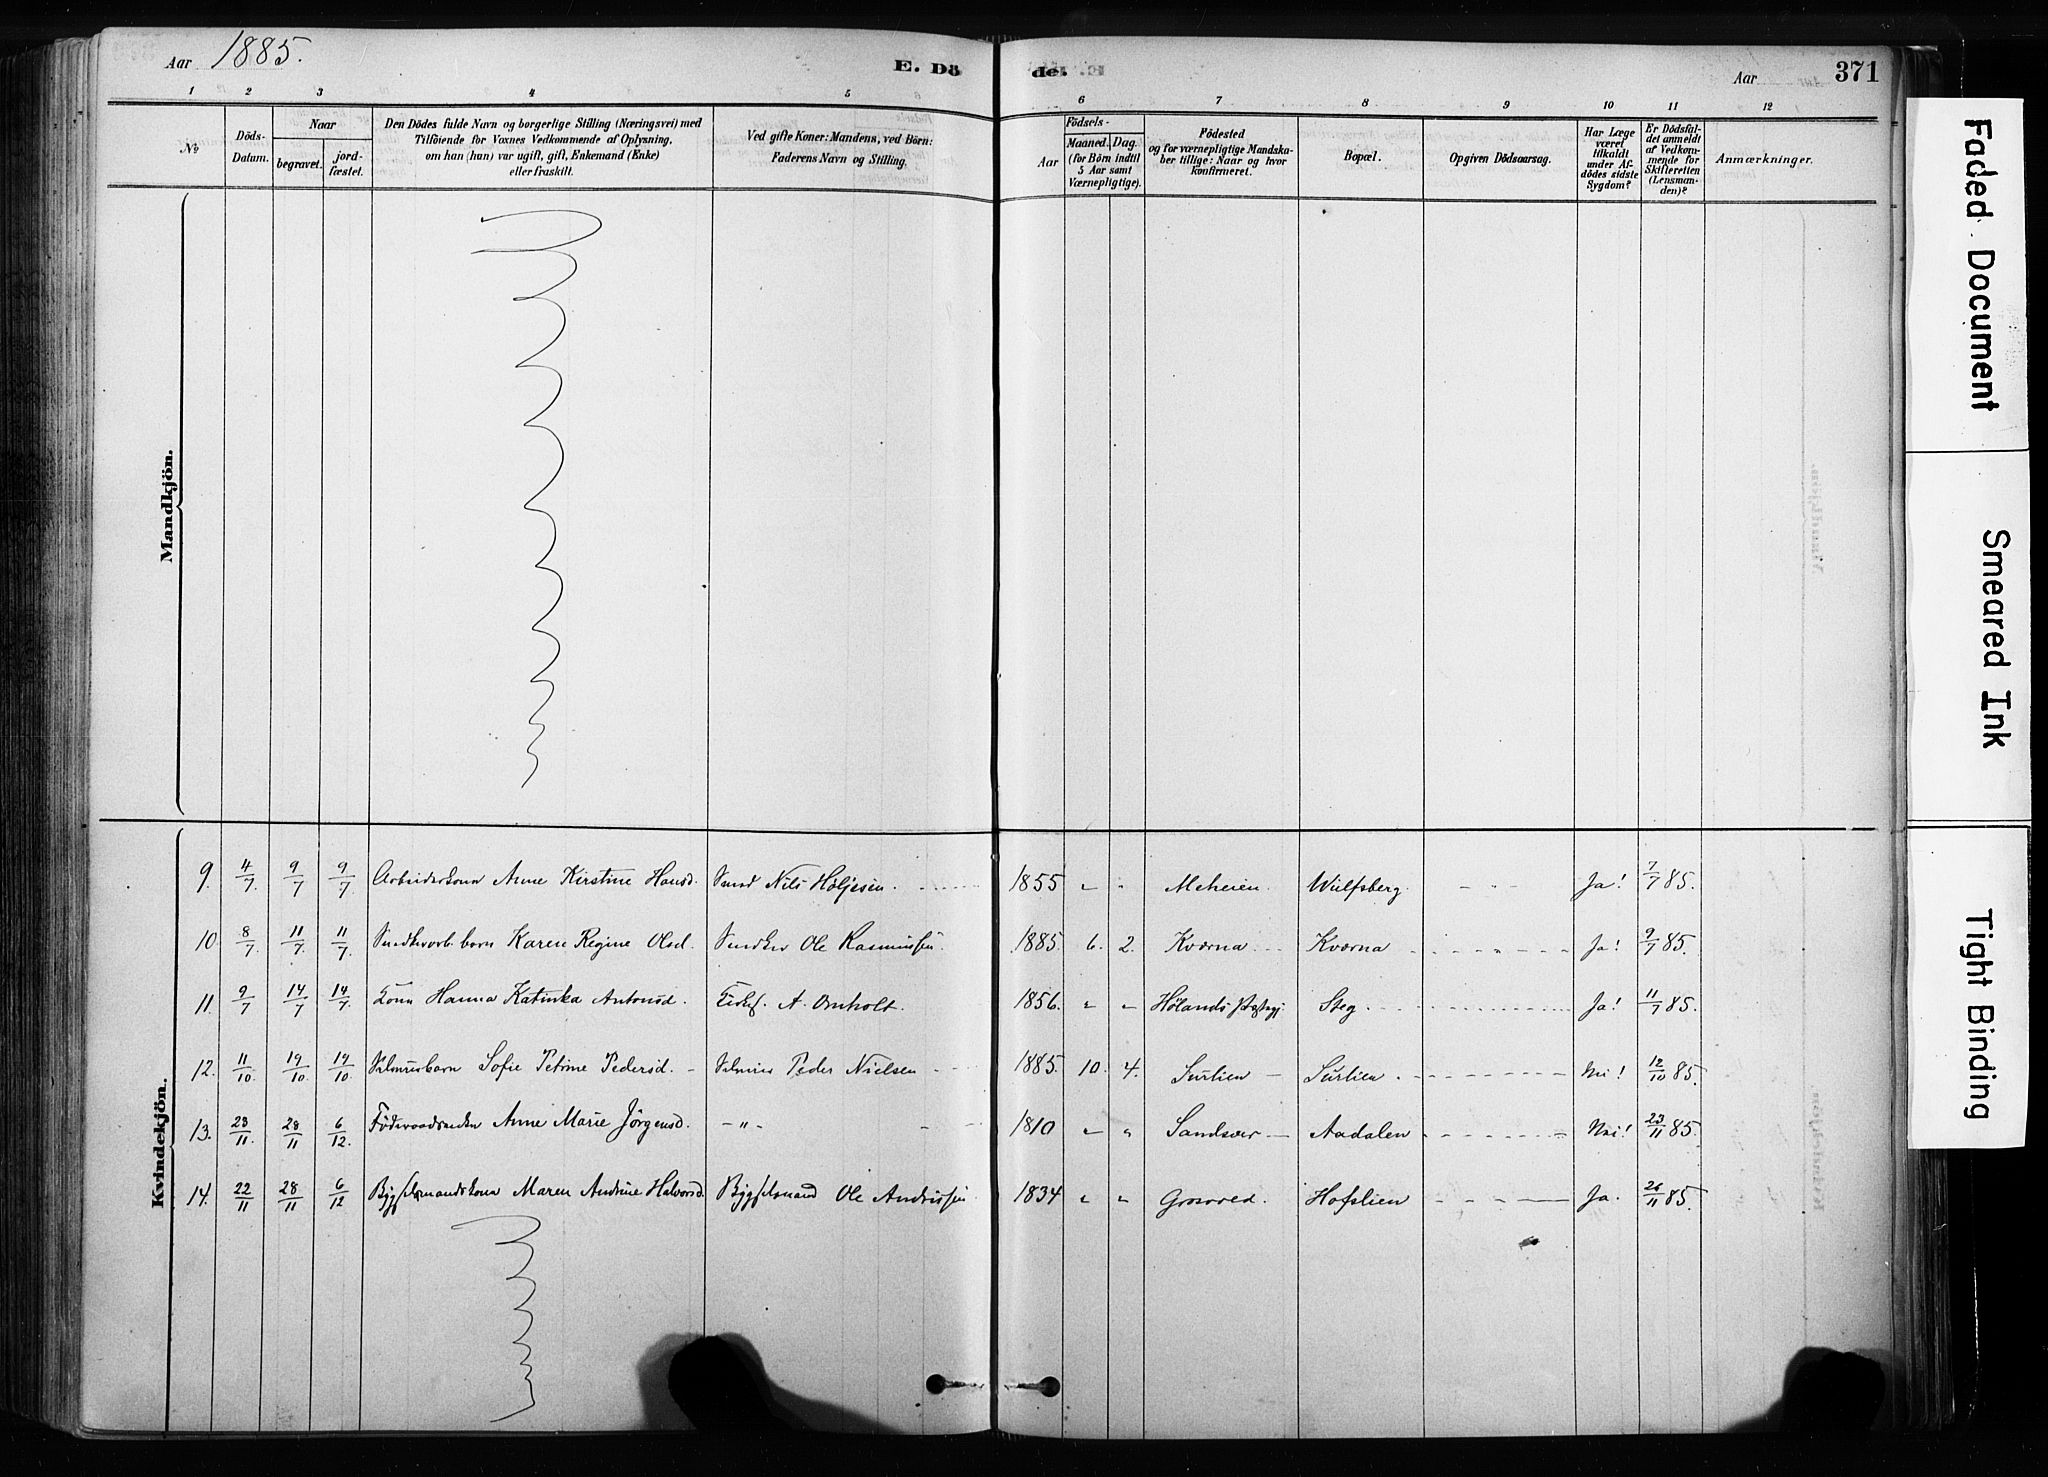 Aar 1885. E. Dö de. Aar 371
1 2 3 4 5 6 7 8 9 10 11 12
No
Döds-Datum.
Naar
begravet.
jord-fæstet.
Den Dödes fulde Navn og borgerlige Stilling (Næringsvei) med
Tilföiende for Voxnes Vedkommende af Oplysning,
om han (hun) var ugift, gift, Enkemand (Enke)
eller fraskilt.
Ved gifte Koner: Mandens, ved Börn:
Faderens Navn og Stilling.
Födsels-
Aar
Maaned. Dag.
(for Börn indtil
5 Aar samt
Værnepligtige).
Födested
og for værnepligtige Mandska-
ber tillige: Naar og hvor
konfirmeret.
Bopæl.
Opgiven Dödsaarsag.
Har Læge
været
tilkaldt
under Af-
dödes sidste
Sygdom?
Er Dödsfal-
det anmeldt
af Vedkom-
mende for
Skifteretten
(Lensman-
den)?
Anmærkninger.
Mandkjön.
Kvindekjön.
9. 4/7. 9/7 9/7 Arbeiderkona Anne Kirstine Hansd. Smed Nils Høljesen. 1855 " " Meheien. Wulfsberg. " Ja! 7/7 85.
10. 8/7. 11/7. 11/7. born Karen Regine Olsd. Ole Rasmussen. 1885. 6. 2. Kværna Kværna " Ja! 9/7 85.
11. 9/7 14/7 14/7. Kona Hanna Katinka Antonsd. A. Ornholt. 1856. " " Hølands Steg. Ja! 11/7 85.
12. 11/10. 19/10. 19/10. Sofie Petrine Pedersd. Peder Nielsen 1885. 10. 4. Surlien Surlien. Nei! 12/10 85.
13. 23/11. 28/11 6/12. Føderaadsenke Anne Marie Jørgensd. " 1810 " " Sandsvær Aadalen Nei! 23/11 85.
14. 22/11 28/11 6/12 Bygselmandskona Maren Andrine Halvorsd. Bygselmand Ole Andriessen 1834 " " Grosvold. Hofslien Ja. 26/11 85.
Faded Document
Smeared Ink
Tight Binding